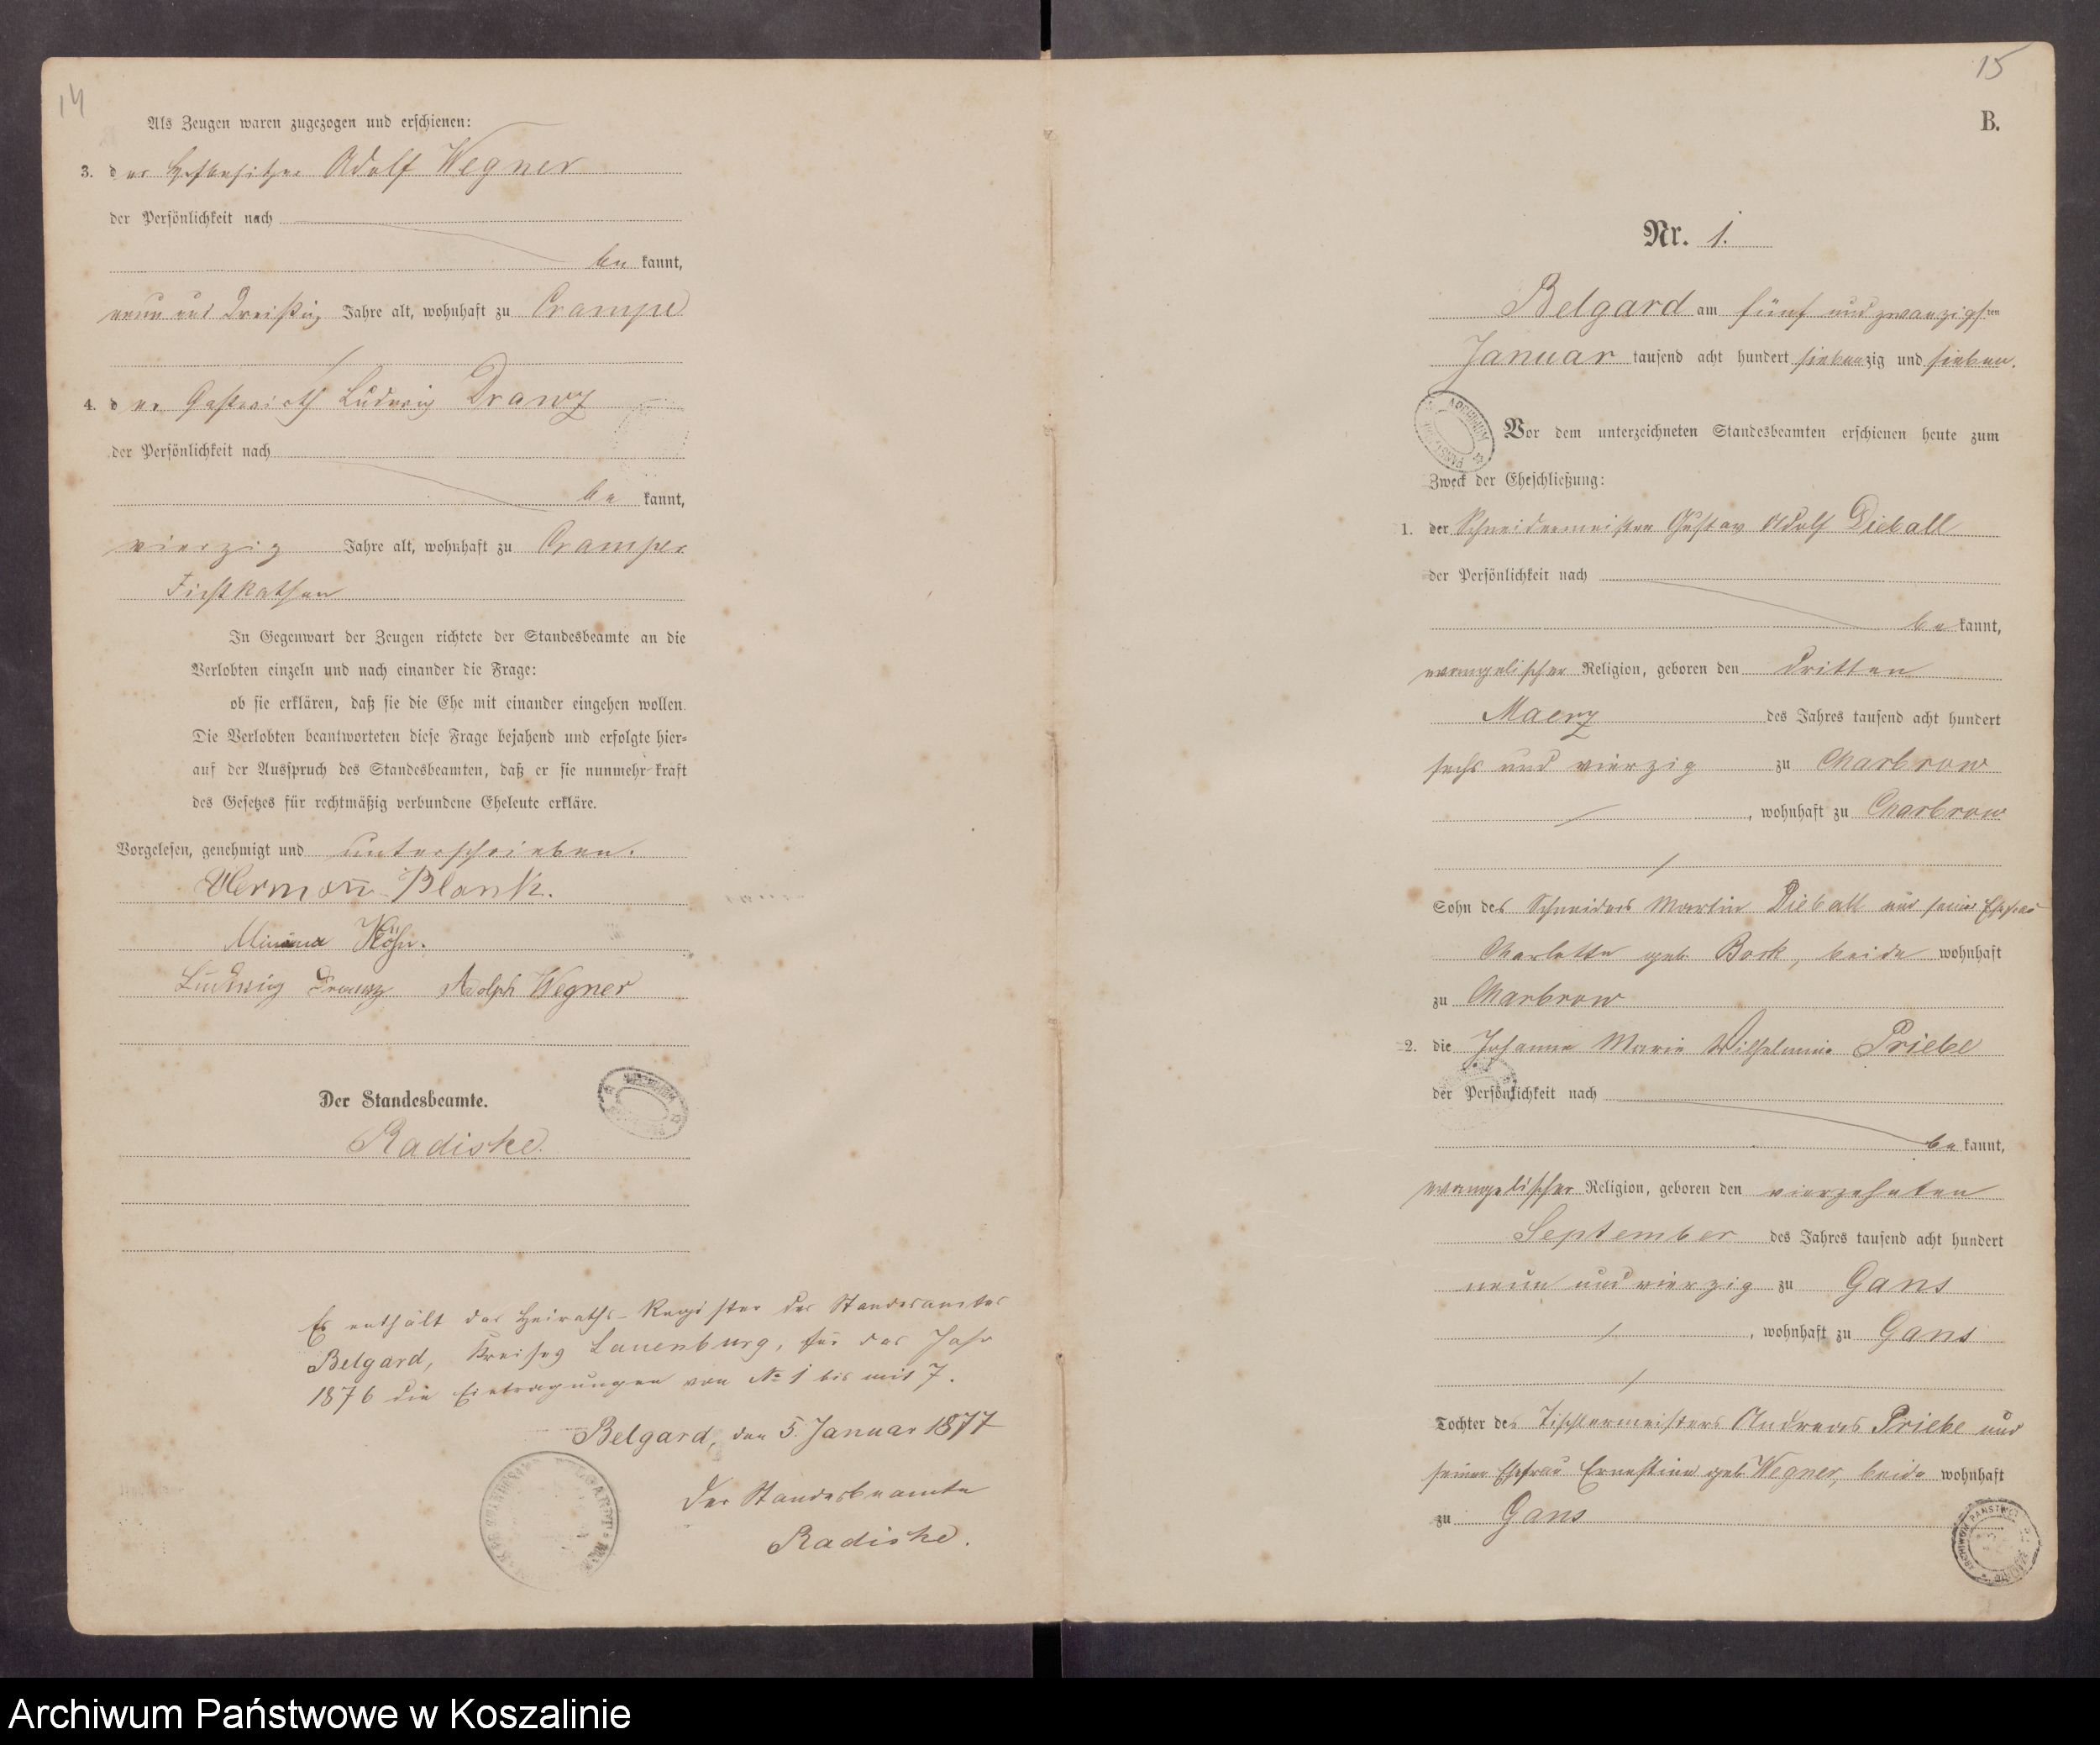 14
Als Zeugen waren zugezogen und erschienen:
3. der Hofbesitzer Adolf Wegner
der Persönlichkeit nach
be kannt,
neun und dreißig Jahre alt, wohnhaft zu Crampe
4. der Gastwirth Ludwig Drawz
der Persönlichkeit nach
be kannt,
vierzig Jahre alt, wohnhaft zu Cramper
Fichtkathen
In Gegenwart der Zeugen richtete der Standesbeamte an die
Verlobten einzeln und nach einander die Frage:
ob sie erklären, daß sie die Ehe mit einander eingehen wollen.
Die Verlobten beantworteten diese Frage bejahend und erfolgte hier=
auf der Ausspruch des Standesbeamten, daß er sie nunmehr kraft
des Gesetzes für rechtmäßig verbundene Eheleute erkläre.
Vorgelesen, genehmigt und unterschrieben.
Hermann Blank.
Minna Köhn.
Ludwig Drawz Adolph Wegner
Der Standesbeamte.
Radiske.
Es enthält das Heiraths-Register des Standesamtes
Belgard, Kreises Lauenburg, für das Jahr
1876 die Eintragungen von № 1 bis mit 7.
Belgard, den 5. Januar 1877
Der Standesbeamte
Radiske.
15
B.
Nr. 1.
Belgard am fünf und zwanzigsten
Januar tausend acht hundert siebenzig und sieben.
ARCHIWUM
Vor dem unterzeichneten Standesbeamten erschienen heute zum
Zweck der Eheschließung:
1. der Schneidermeister Gustav Adolf Dieball
der Persönlichkeit nach
be kannt,
evangelischer Religion, geboren den dritten
Maerz des Jahres tausend acht hundert
sechs und vierzig zu Charbrow
, wohnhaft zu Charbrow
Sohn des Schneiders Martin Dieball und seiner Ehefrau
Charlotte geb. Bork, beide wohnhaft
zu Charbrow
2. die Johanne Marie Wilhelmine Priebe
der Persönlichkeit nach
be kannt,
evangelischer Religion, geboren den vierzehnten
September des Jahres tausend acht hundert
neun und vierzig zu Gans
, wohnhaft zu Gans
Tochter des Tischlermeisters Andreas Priebe und
seiner Ehefrau Ernestine geb. Wegner, beide wohnhaft
zu Gans
Archiwum Państwowe w Koszalinie